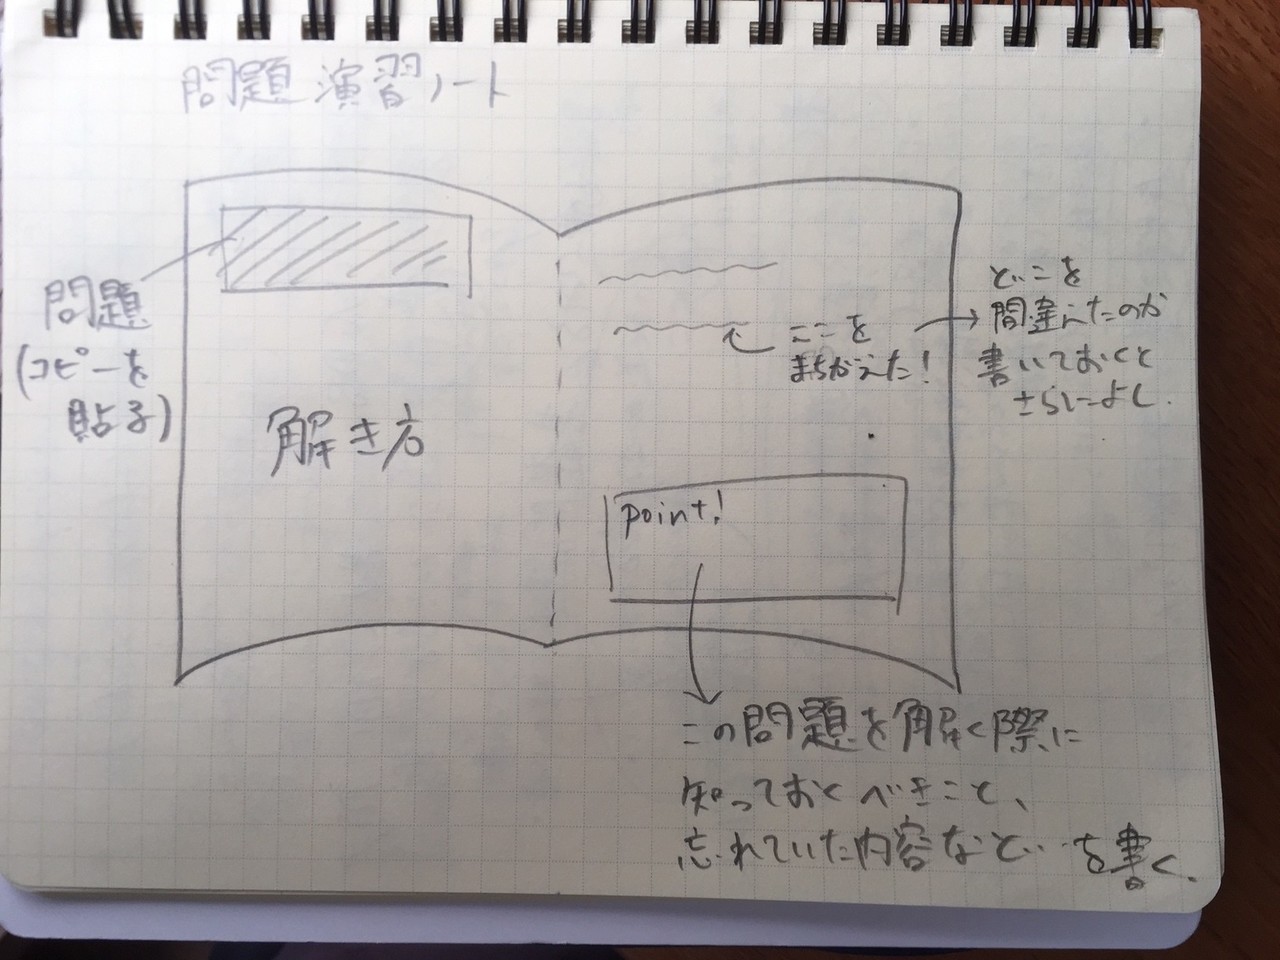 問題演習ノート
問題
(コピーを
貼る)
解き方
ここを
まちがえた!
どこを
間違えたのか
書いておくと
さらによし.
point!
この問題を解く際に
知っておくべきこと、
忘れていた内容など…を書く.